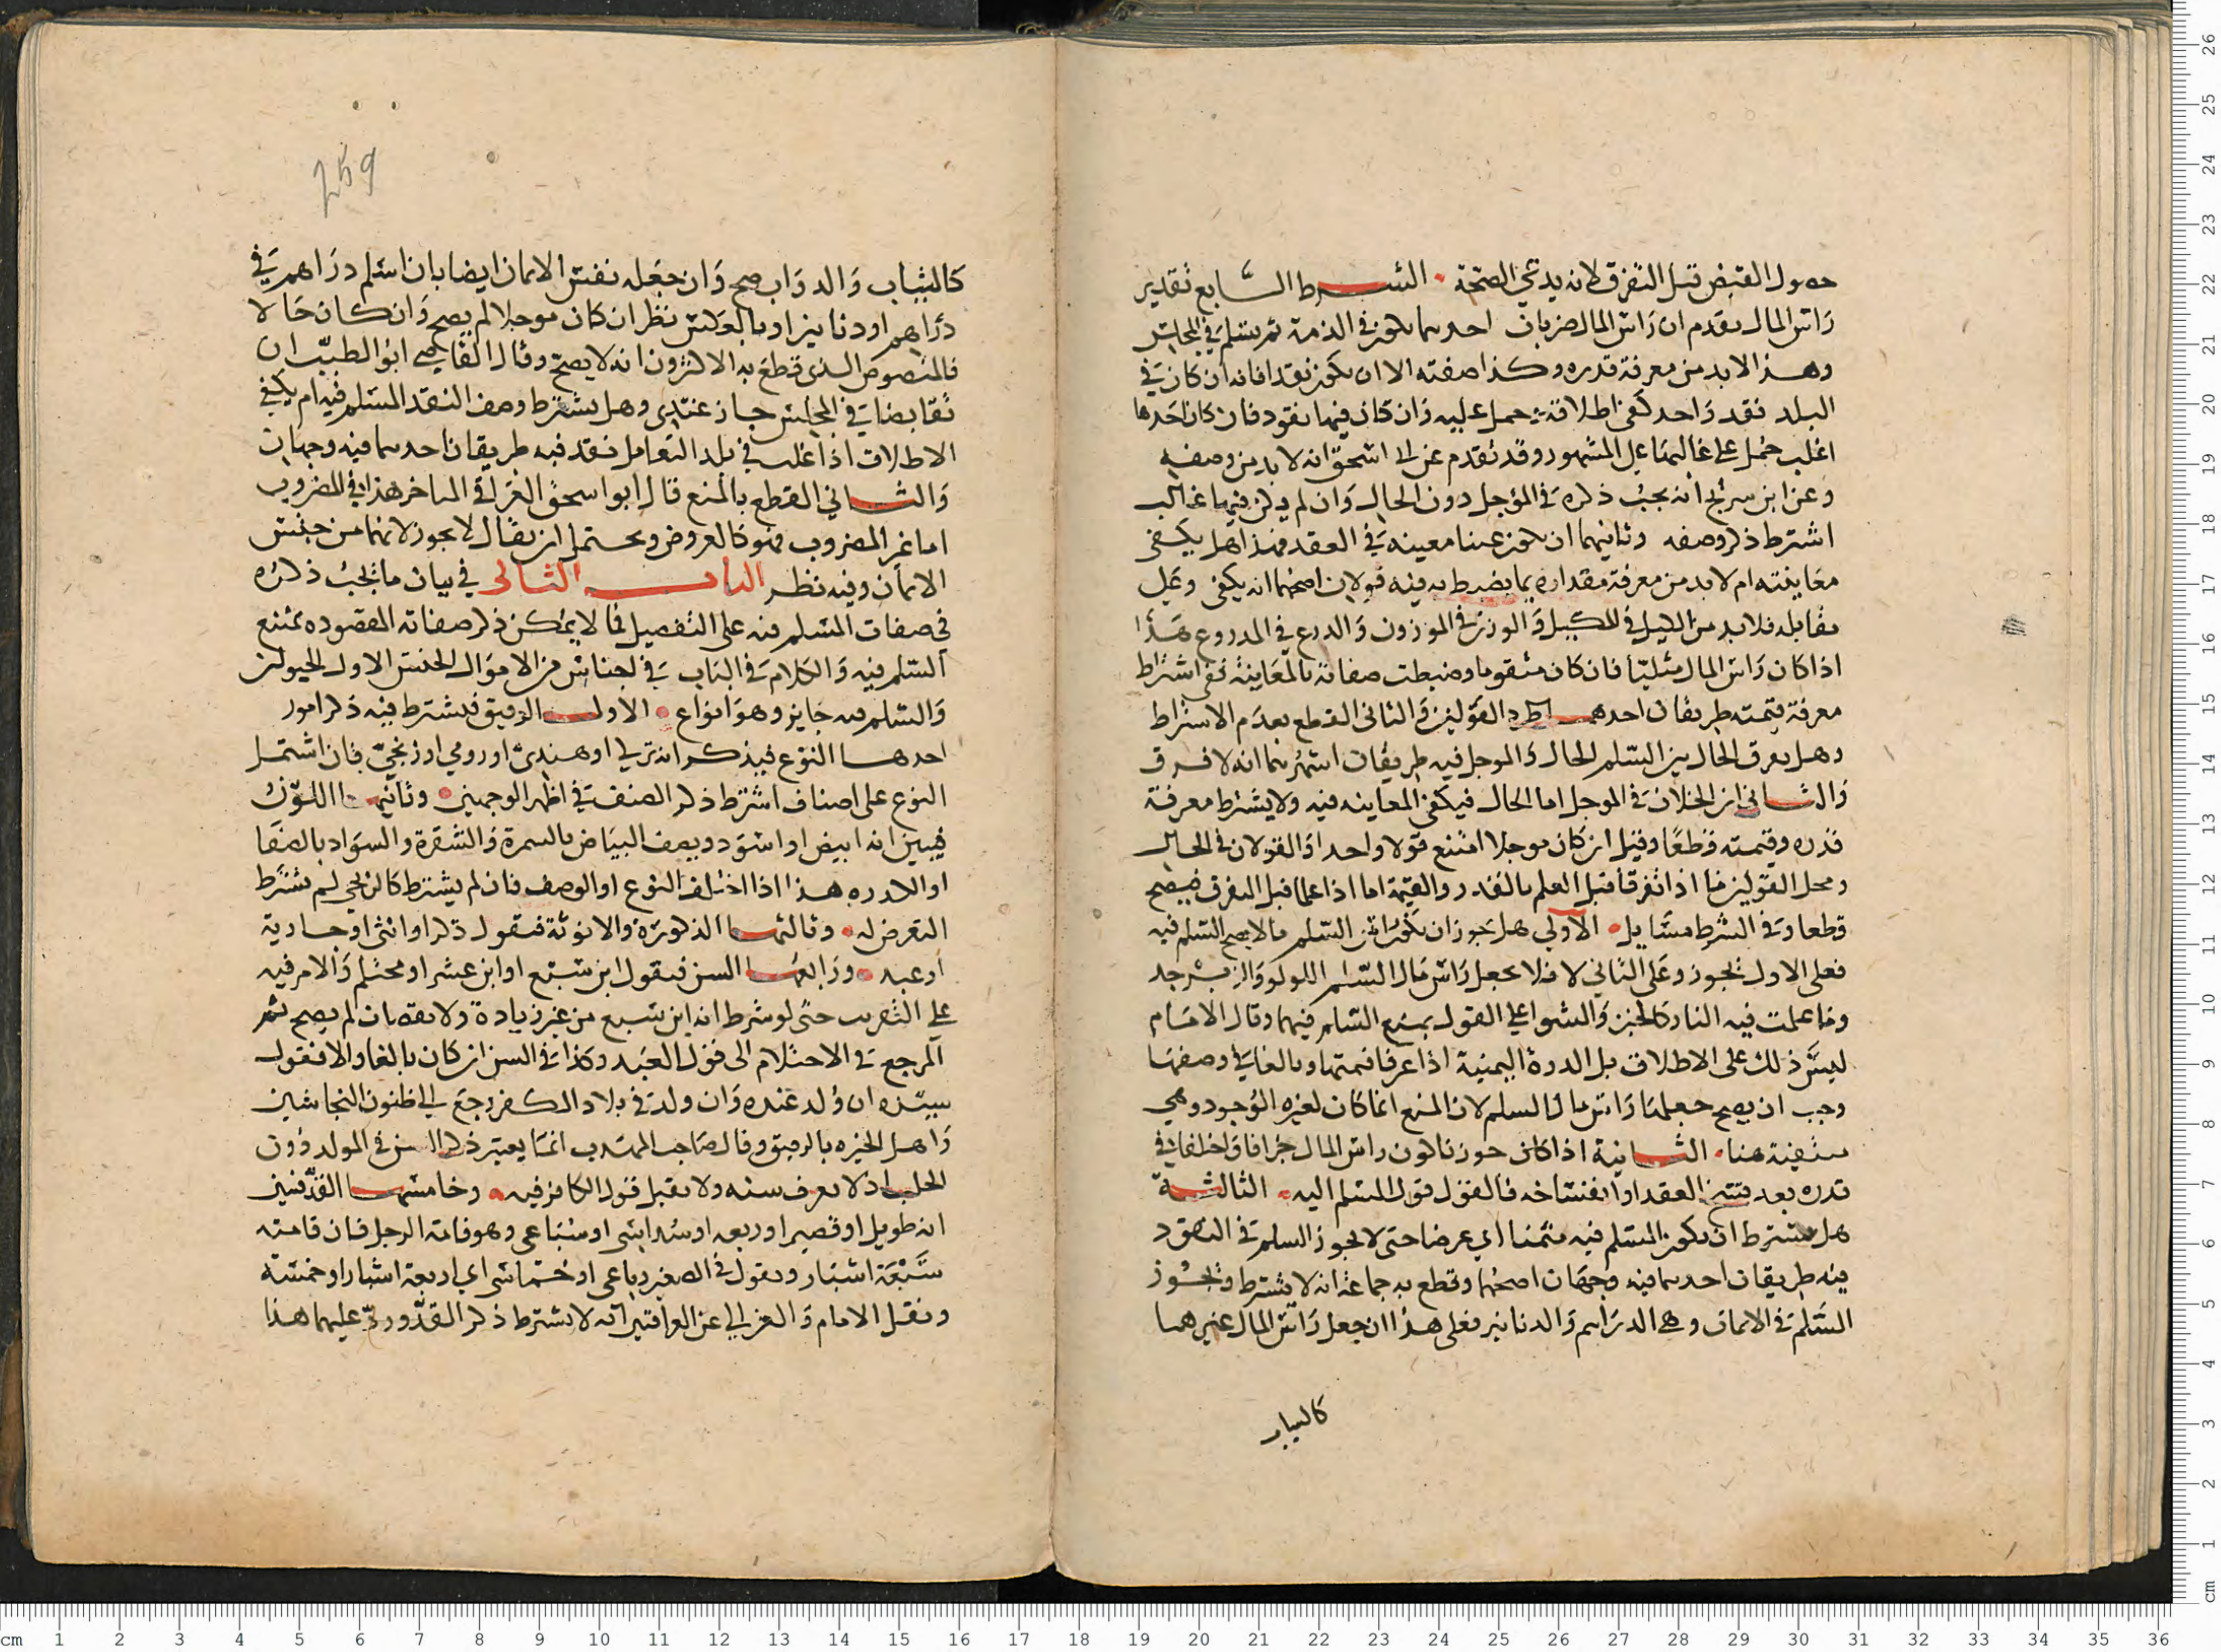 حصول القبض قبل التفرق لانه يدعي الصحة الشرط السابع تقدير
راس المال يقدم ان راس المال ضربان احدهما يكون في الذمة ثم يسلم في المجلس
وهذا لابد من معرفة قدره وكذا صفته الا ان يكون نقدا فانه ان كان في
البلد نقد واحد كفى اطلاقه وحمل عليه وان كان فيها نقود فان كان احدها
اغلب حمل على غالبها على المشهور وقد تقدم عن ابي اسحق انه لا بد من وصفه
وعن ابن سريج انه يجب ذكره في المؤجل دون الحال وان لم يكن فيها غالب
اشترط ذكر وصفه وثانيهما ان يكون عينا معينه في العقد فهذا هل يكفي
معاينته ام لا بد من معرفة مقداره بما يضبط به فيه قولان اصحهما انه يكفي وعلى
مقابله فلابد من الكيل في المكيل والوزن في الموزون والذرع في المذروع هذا
اذا كان راس المال مثليا فان كان متقوما وضبطت صفاته بالمعاينة ففي اشتراط
معرفة قيمته طريقان احدهما طرد القولين والثاني القطع بعدم الاشتراط
وهل يفرق الحال بين السلم الحال والموجل فيه طريقان اشهرهما انه لا فرق
والثاني ان الخلاف في الموجل اما الحال فيكفي المعاينه فيه ولا يشترط معرفة
قدره وقيمته قطعا وقيل ان كان موجلا امتنع قولا واحدا والقولان في الحال
ومحل القولين ما اذا تفرقا قبل العلم بالقدر والقيمة اما اذا علما قبل التفرق فيصح
قطعا وفي الشرط مسايل الاولى هل يجوز ان يكون راس السلم ما لا يصح السلم فيه
فعلى الاول يجوز وعلى الثاني لا فلا يجعل راس مال السلم اللولو والزبرجد
وما عملت فيه النار كالخبز والشوا على القول بمنع السلم فيهما وقال الامام
ليس ذلك على الاطلاق بل الدرة اليمنية اذا عرفا قيمتها وبالغا في وصفها
وجب ان يصح جعلها راس مال السلم لان المنع انما كان لعزه الوجود وهي
منفية هنا الثانية اذا كان جوزنا كون راس المال جزافا واختلفا في
قدره بعد فسخ العقد او انفساخه فالقول قول المسلم اليه الثالثة
هل يشترط ان يكون المسلم فيه مثمنا اي عرضا حتى لا يجوز السلم في النقود
فيه طريقان احدهما فيه وجهان اصحهما وقطع به جماعة انه لا يشترط ويجوز
السلم في الاثمان وهي الدراهم والدنانير فعلى هذا ان جعل راس المال غيرهما
كالثياب
259
كالثياب والدواب صح وان جعله نفس الاثمان ايضا بان اسلم دراهم في
دراهم او دنانير او بالعكس نظر ان كان موجلا لم يصح وان كان حالا
فالمنصوص الذي قطع به الاكثرون انه لا يصح وقال القاضي ابو الطيب ان
تقابضا في المجلس جاز عندي وهل يشترط وصف النقد المسلم فيه ام يكفي
الاطلاق اذا غلب في بلد التعامل نقد فيه طريقان احدهما فيه وجهان
والثاني القطع بالمنع قال ابو اسحق العراقي الماخر هذا في المضروب
اما غير المضروب فهو كالعروض ويحتمل ان يقال لا يجوز لانهما من جنس
الاثمان وفيه نظر الباب الثاني في بيان ما يجب ذكره
في صفات المسلم فيه على التفصيل فما لا يمكن ذكر صفاته المقصوده يمتنع
السلم فيه والكلام في الباب في اجناس من الاموال الجنس الاول الحيوان
والسلم فيه جايز وهو انواع الاول الرقيق فيشترط فيه ذكر امور
احدها النوع فيذكر انه تركي او هندي او رومي او زنجي فان اشتمل
النوع على اصناف اشترط ذكر الصنف في اظهر الوجهين وثانيها اللون
فيبين انه ابيض او اسود ويصف البياض بالسمرة والشقرة والسواد بالصفا
او الكدره هذا اذا اختلف النوع او الوصف فان لم يشترط كالزنجي لم يشترط
التعرض له وثالثها الذكورة والانوثة فيقول ذكر او انثى او جارية
او عبد ورابعها السن فيقول ابن سبع او ابن عشر او محتلم والامر فيه
على التقريب حتى لو شرط انه ابن سبع من غير زيادة ولا نقصان لم يصح ثم
المرجع في الاحتلام الى قول العبد وكذا في السن ان كان بالغا والا فقول
سيده ان ولد عنده وان ولد في بلاد الكفر رجع الى ظنون النخاسين
واهل الخبره بالرقيق وقال صاحب المهذب انما يعتبر ذكر السن في المولد دون
الجلب اذ لا يعرف سنه ولا يقبل قول الكافر فيه وخامسها القد فيبين
انه طويل او قصير او ربعه او سداسي او سباعي وهو قامة الرجل فان قامته
سبعة اشبار ويقول في الصغير رباعي او خماسي اي اربعة اشبار او خمسة
ونقل الامام والغزالي عن العراقيين انه لا يشترط ذكر القد ورد عليهما هذا